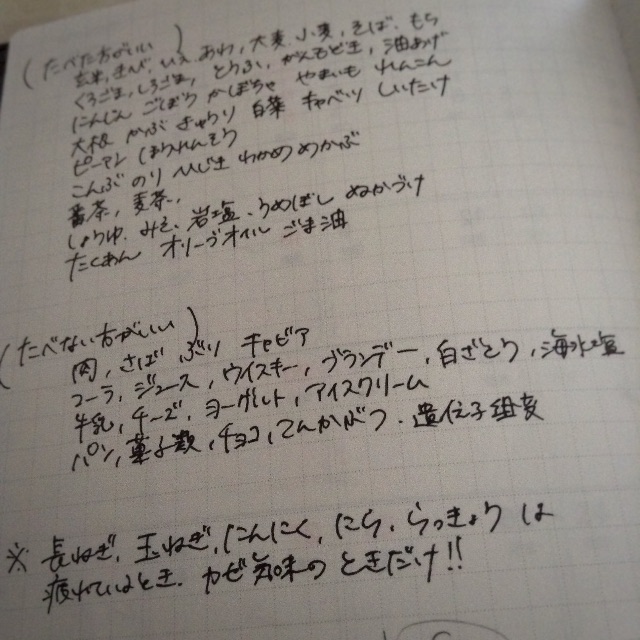 (たべた方がいい)
玄米、きび、ひえ、あわ、大麦、小麦、そば、もち
くろごま、しろごま、とうふ、がんもどき、油あげ
にんじん ごぼう かぼちゃ やまいも れんこん
大根 かぶ きゅうり 白菜 キャベツ しいたけ
ピーマン ほうれんそう
こんぶ のり ひじき わかめ めかぶ
番茶、麦茶、
しょうゆ、みそ、岩塩、うめぼし ぬかづけ
たくあん オリーブオイル ごま油
(たべない方がいい)
肉、さば ぶり キャビア
コーラ、ジュース、ウイスキー、ブランデー、白ざとう、海水塩
牛乳、チーズ、ヨーグルト、アイスクリーム
パン、菓子類、チョコ、てんかぶつ・遺伝子組変
※ 長ねぎ、玉ねぎ、にんにく、にら、らっきょうは
疲れているとき、カゼ気味のときだけ!!